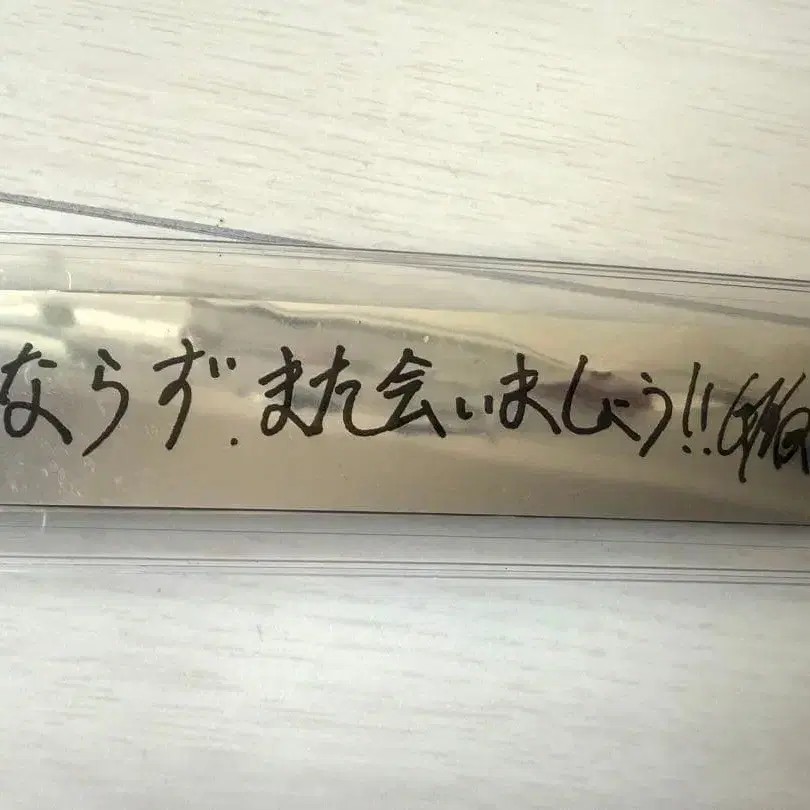 ならず.また会いましょう!!